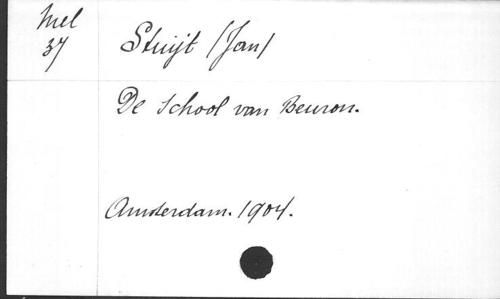 Mel
37
Stuijt /Jan/
De School van Beuron.
Amsterdam. 1904.